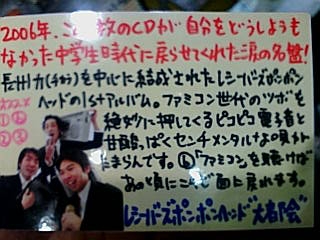 2006年、この数のCDが自分をどうしようも
なかった中学生時代に戻らせてくれた涙の名盤!
長州力(チカラ)を中心に結成されたレシーバーズポンポン
ヘッドの1stアルバム。ファミコン世代のツボを
絶妙に押してくるピコピコ電子音と
甘酸っぱくセンチメンタルな唄が
たまらんです。⑥"ファミコン"を聴けば
あの頃に 戻れます。
オススメ
①⑥
②
③
レシーバーズポンポンヘッド"大名会"